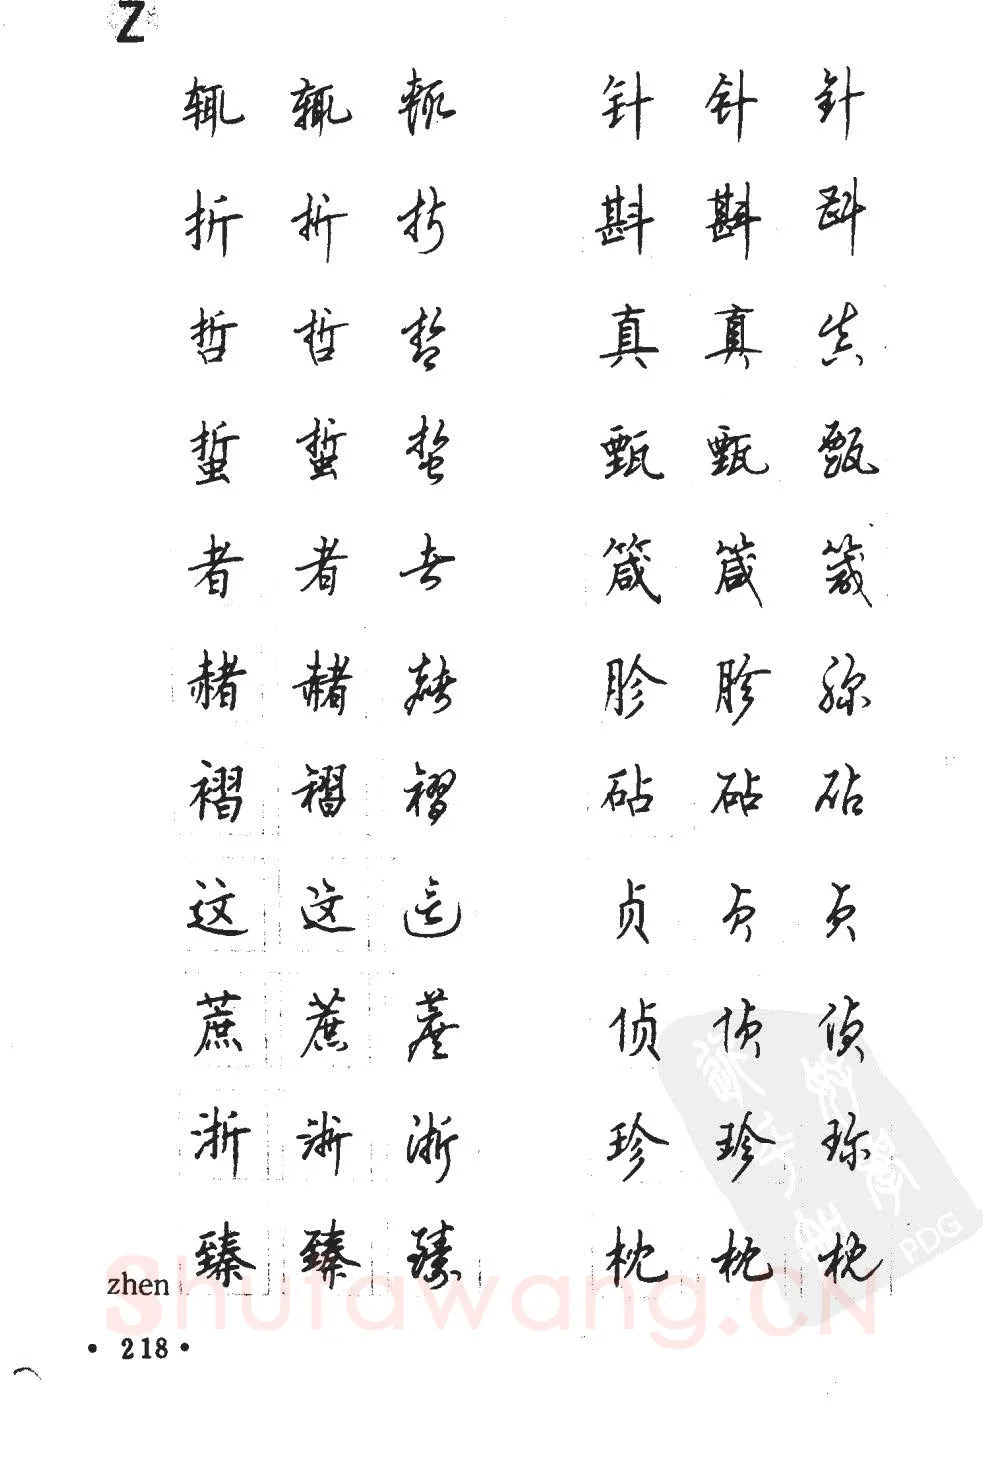 Z
辄 辄 辄 针 针 針
折 折 折 斟 斟 斟
哲 哲 哲 真 真 真
蜇 蜇 蜇 甄 甄 甄
者 者 者 箴 箴 箴
赭 赭 赭 胗 胗 胗
褶 褶 褶 砧 砧 砧
这 这 这 贞 贞 贞
蔗 蔗 蔗 侦 侦 侦
浙 浙 浙 珍 珍 珍
zhen 臻 臻 臻 枕 枕 枕
Shufawang.CN
PDG
• 218 •